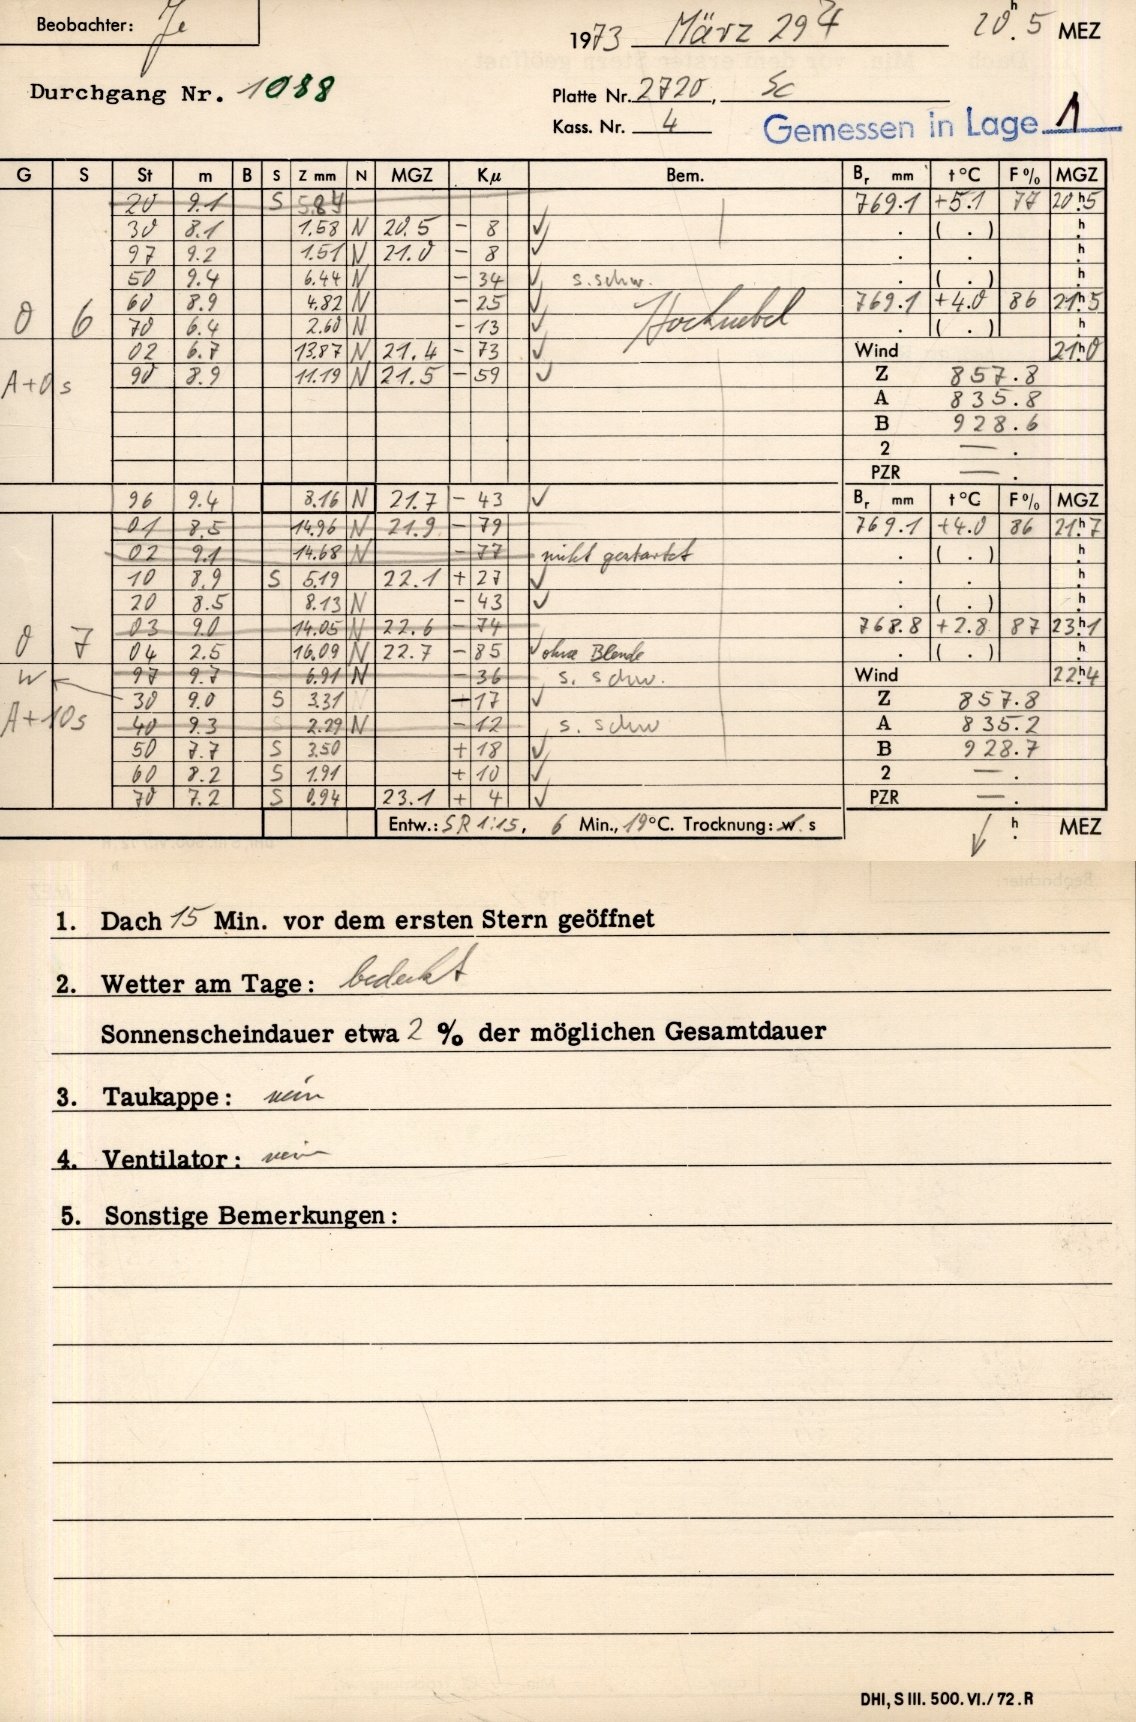 Beobachter: Je
1973 März 29 20.5 h MEZ
Durchgang Nr. 1088
Platte Nr. 2720, Sc
Kass. Nr. 4
Gemessen in Lage 1
G S St m B S Z mm N MGZ Kμ Bem. Br mm t°C F% MGZ
20 9.1 S 5.84 769.1 +5.1 77 20h5
30 8.1 1.58 N 20.5 - 8 ✓ . ( . ) h
97 9.2 1.51 N 21.0 - 8 ✓ . . h
50 9.4 6.44 N - 34 ✓ s. schw. . ( . ) h
0 6 60 8.9 4.82 N - 25 ✓ Hochnebel 769.1 +4.0 86 21h5
70 6.4 2.60 N - 13 ✓ . ( . ) h
02 6.7 13.87 N 21.4 - 73 ✓ Wind 21h0
A+0s 90 8.9 11.19 N 21.5 - 59 ✓ Z 857.8
A 835.8
B 928.6
2 — .
PZR — .
96 9.4 8.16 N 21.7 - 43 ✓ Br mm t°C F% MGZ
01 8.5 14.96 N 21.9 - 79 769.1 +4.0 86 21h7
02 9.1 14.68 N - 77 nicht gestartet . ( . ) h
10 8.9 S 5.19 22.1 + 27 ✓ . . h
20 8.5 8.13 N - 43 ✓ . ( . ) h
03 9.0 14.05 N 22.6 - 74 768.8 +2.8 87 23h1
0 7 04 2.5 16.09 N 22.7 - 85 ✓ ohne Blende . ( . ) h
W 97 9.7 6.91 N - 36 s. schw. Wind 22h4
30 9.0 S 3.31 +17 ✓ Z 857.8
A+10s 40 9.3 2.29 N - 12 s. schw A 835.2
50 7.7 S 3.50 + 18 ✓ B 928.7
60 8.2 S 1.91 + 10 ✓ 2 — .
70 7.2 S 0.94 23.1 + 4 ✓ PZR — .
Entw.: SR 1:15, 6 Min., 19°C. Trocknung: w. s h MEZ
1. Dach 15 Min. vor dem ersten Stern geöffnet
2. Wetter am Tage: bedeckt
Sonnenscheindauer etwa 2 % der möglichen Gesamtdauer
3. Taukappe: nein
4. Ventilator: nein
5. Sonstige Bemerkungen:
DHI, S III. 500. VI./72. R